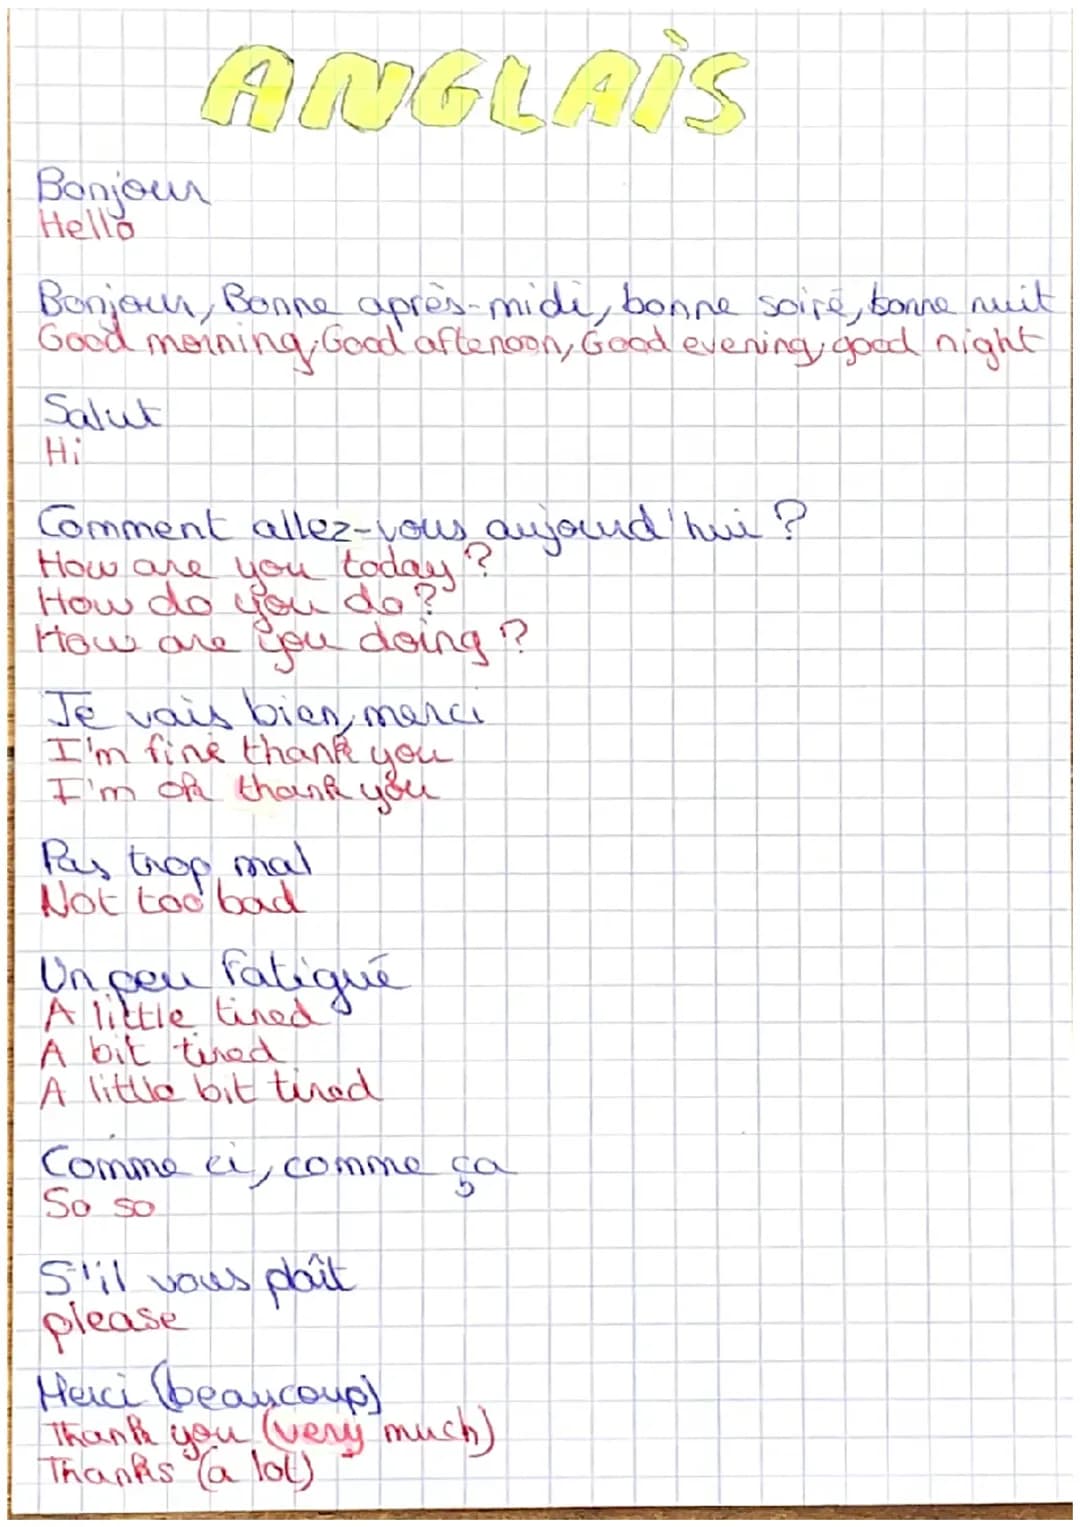 ANGLAIS
Bonjour
Hello
Bonjour, Bonne après-midi, bonne soiré, bonne nuit
Good morning, Good aftenoon, Good evening, good night
Salut
Hi
Comment allez-vous aujourd'hui ?
How are you today ?
How do you do ?
How are you doing ?
Je vais bien, merci
I'm fine thank you
I'm ok thank you
Pas trop mal
Not too bad
Un peu fatigué
A little tired
A bit tired
A little bit tired
Comme ci, comme ça
So so
S'il vous plaît
please
Merci (beaucoup)
Thank you (very much)
Thanks (a lot)